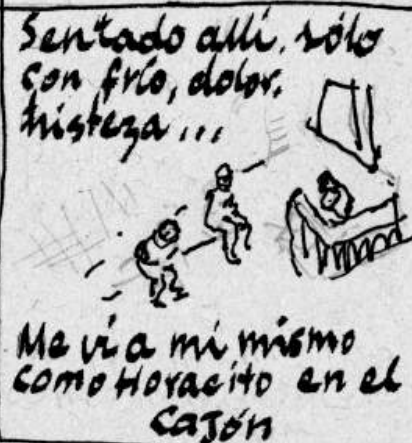 Sentado allí, sólo
con frío, dolor,
tristeza...
Me vi a mi mismo
como Horacito en el
cajón